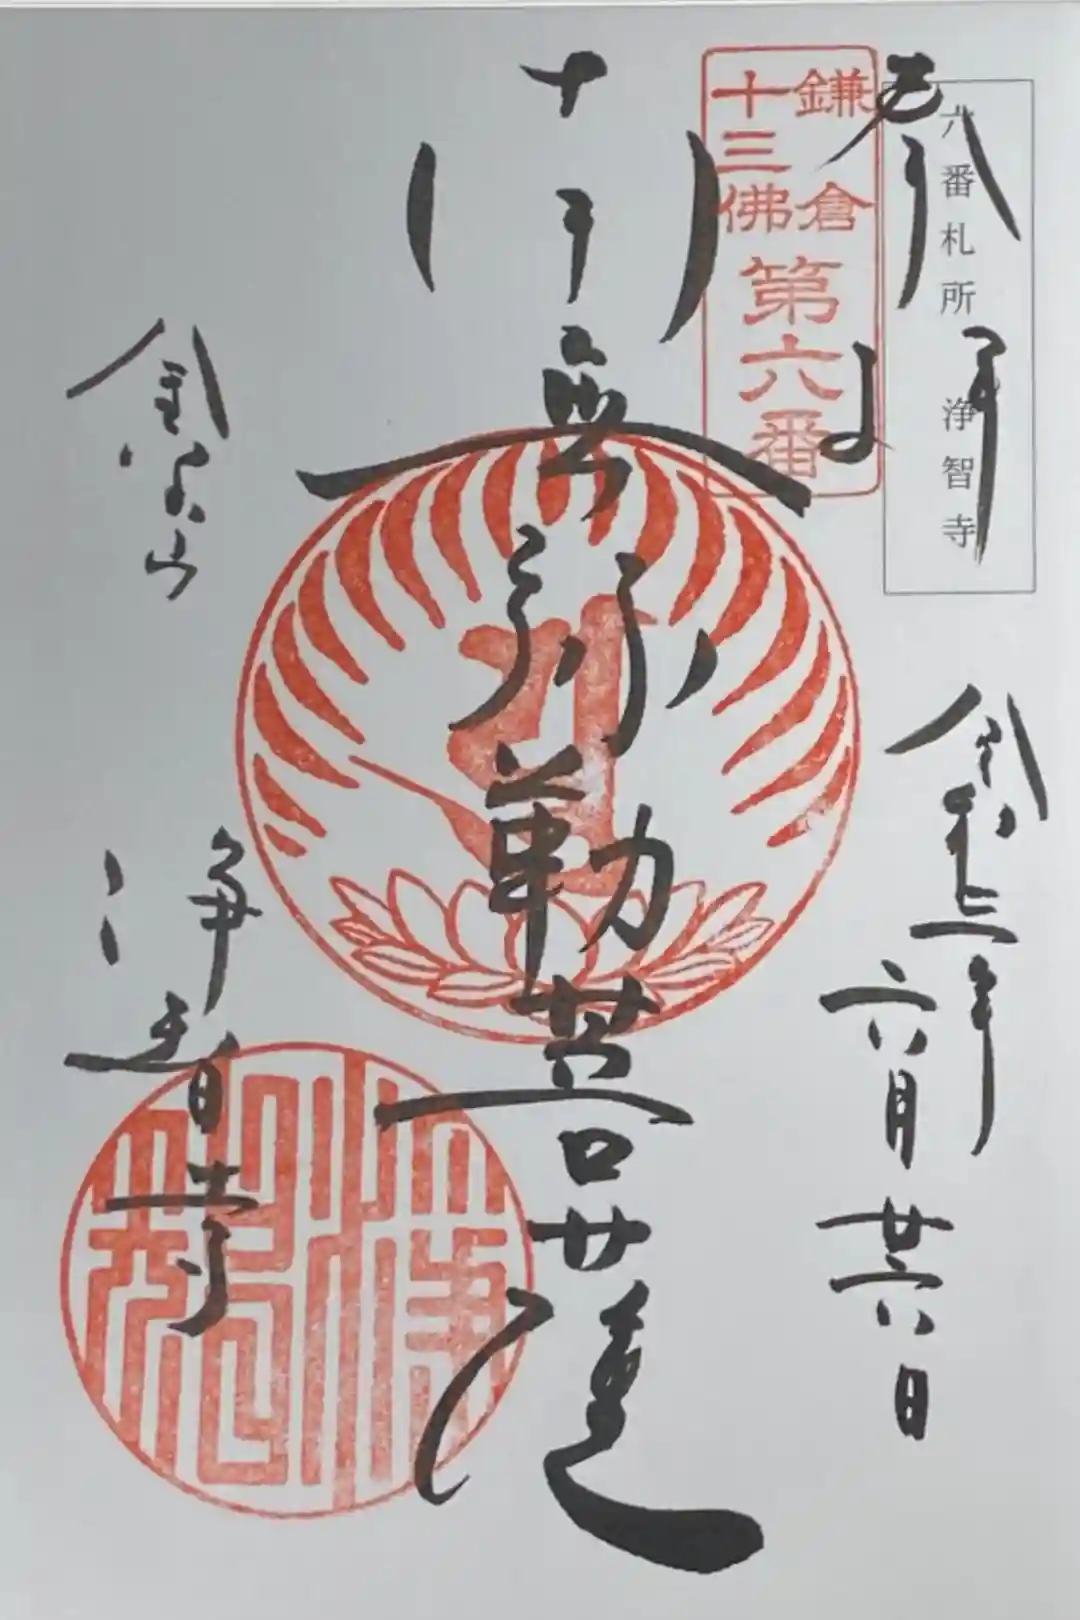 六番札所 浄智寺
奉拝
令和三年六月廿六日
鎌倉
十三佛
第六番
南無弥勒菩薩
金宝山
浄智寺